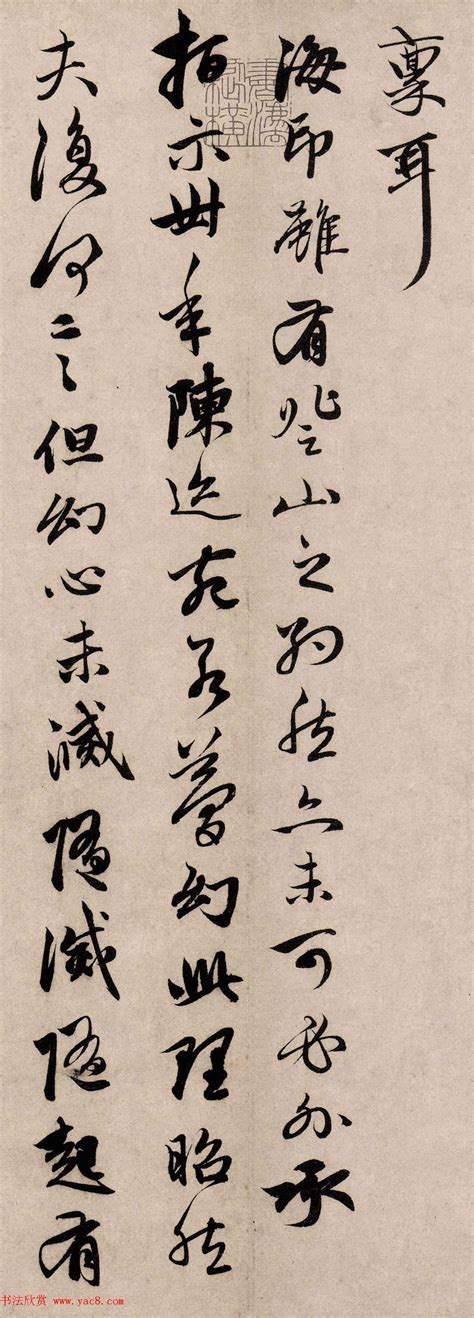 稟耳
海印雖有登山之約然亦未可必外承
指示卅年陳迹宛若夢幻此理昭然
夫復何言但幻心未滅隨滅隨起有
书法欣赏 www.yac8.com